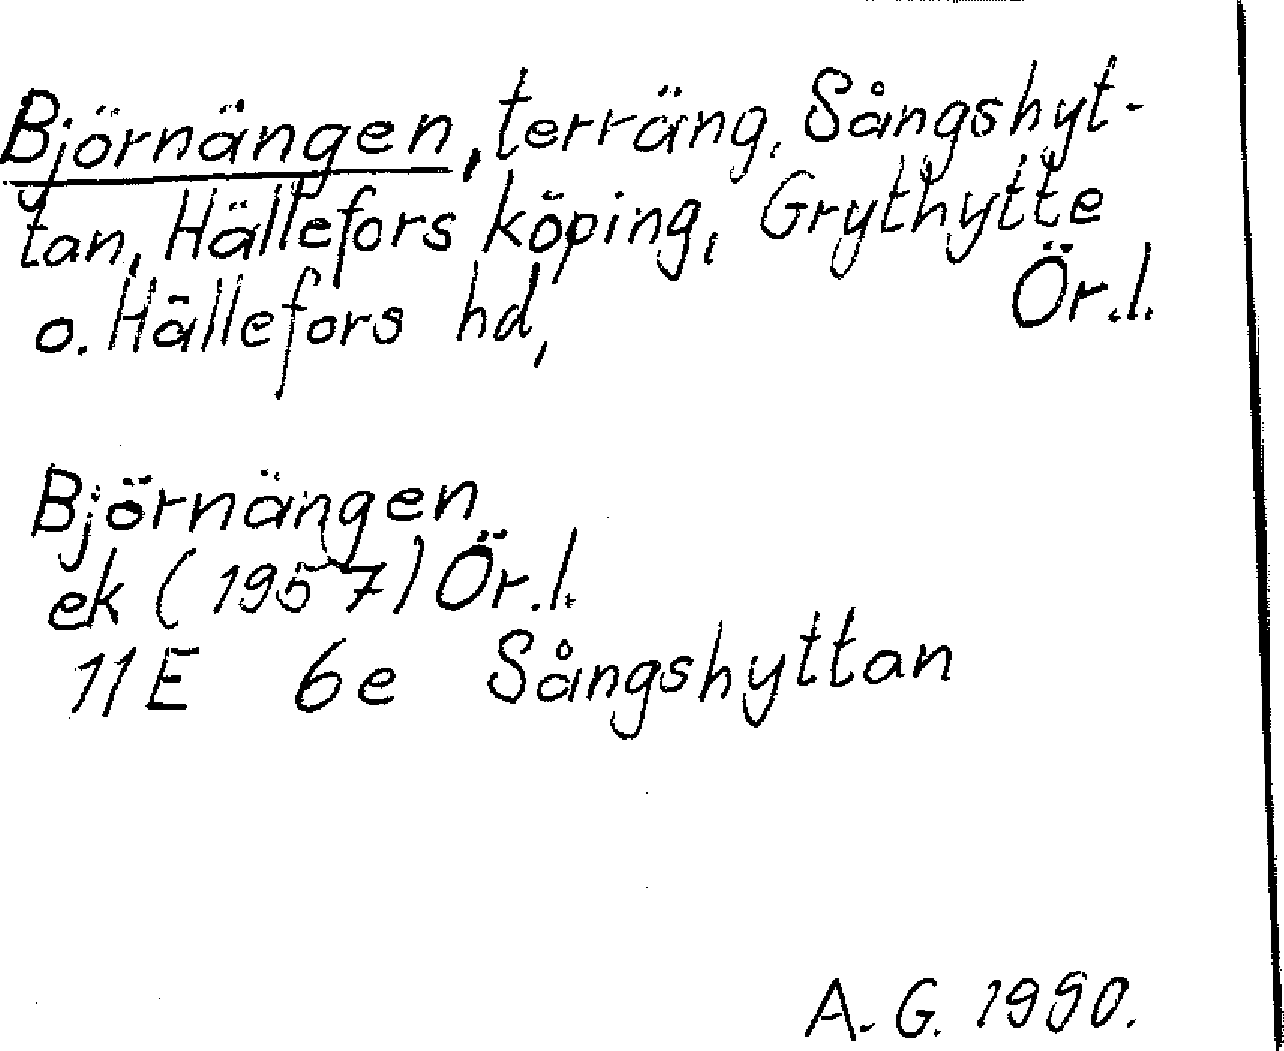 Björnängen, terräng, Sångshyt-
tan, Hällefors köping, Grythytte
o. Hällefors hd, Ör.l.
Björnängen
ek (1957) Ör.l.
11E 6e Sångshyttan
A.G. 1990.